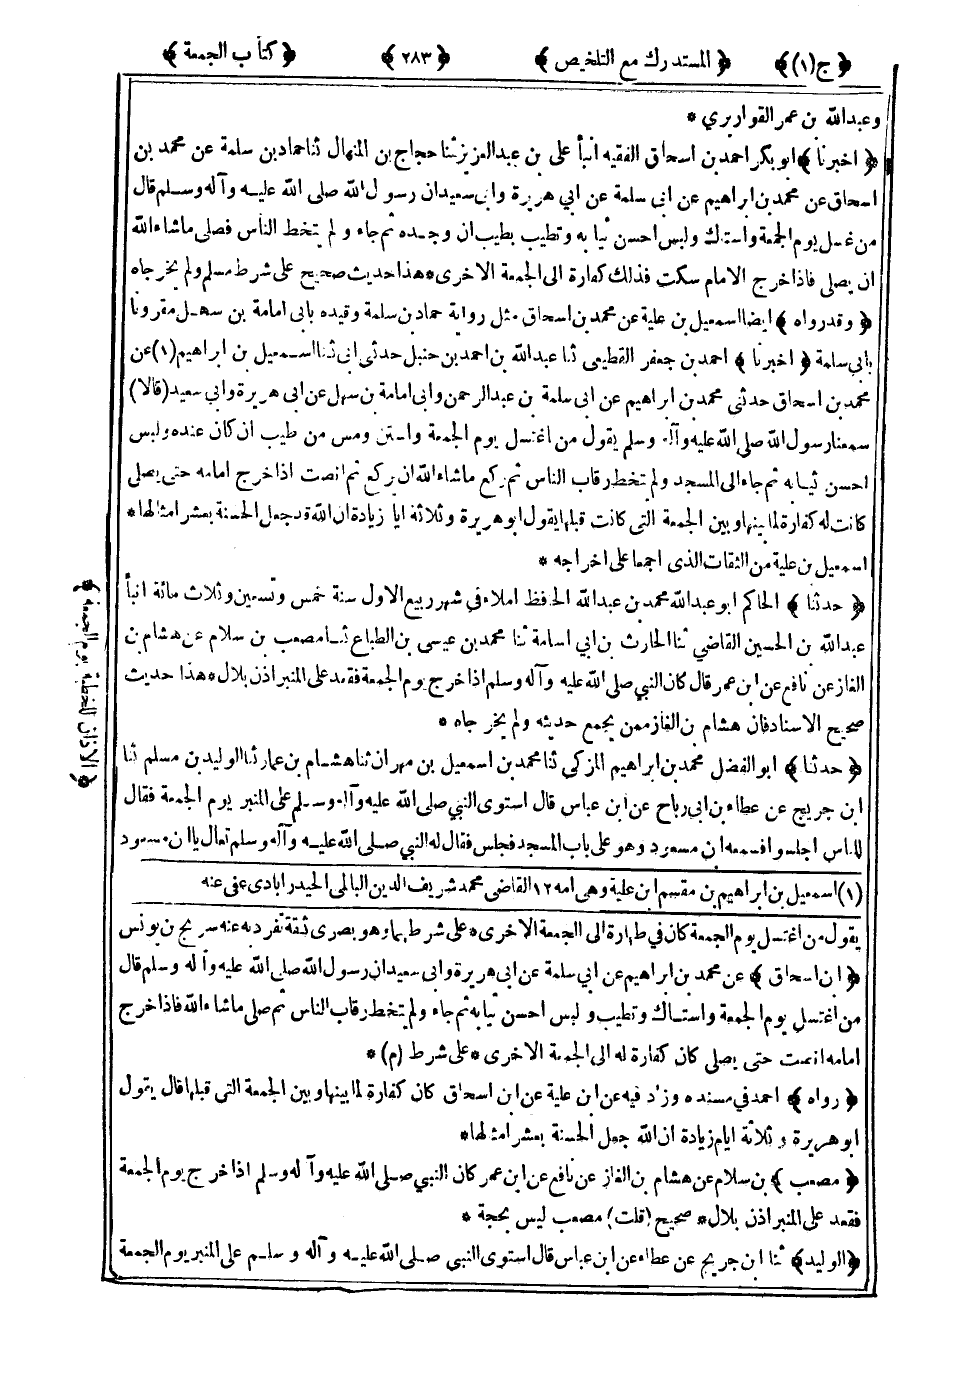 ﴿ ج (١) ﴾ ﴿ المستدرك مع التلخيص ﴾ ﴿ ٢٨٣ ﴾ ﴿ كتاب الجمعة ﴾
وعبدالله بن عمر القواريري *
﴿ اخبرنا ﴾ ابو بكر احمد بن اسحاق الفقيه انبأ على بن عبد العزيز ثنا حجاج بن المنهال ثنا حماد بن سلمة عن محمد بن
اسحاق عن محمد بن ابراهيم عن ابى سلمة عن ابي هريرة وابى سعيد ان رسول الله صلى الله عليه وآله وسلم قال
من غسل يوم الجمعة واستاك ولبس احسن ثيا به وتطيب بطيب ان وجده ثم جاء و لم يتخط الناس فصلى ماشاء الله
ان يصلى فاذا خرج الامام سكت فذلك كفارة الى الجمعة الاخرى * هذا حديث صحيح على شرط مسلم ولم يخرجاه
﴿ وقد رواه ﴾ ايضا اسمعيل بن علية عن محمد بن اسحاق مثل رواية حماد بن سلمة وقيده بابى امامة بن سهل مقرونا
بابي سلمة ﴿ اخبرنا ﴾ احمد بن جعفر القطيعى ثنا عبدالله بن احمد بن حنبل حدثنى ابى ثنا اسمعيل بن ابراهيم (١) عن
محمد بن اسحاق حدثنى محمد بن ابراهيم عن ابى سلمة بن عبد الرحمن وابى امامة بن سهل عن ابى هريرة وابي سعيد (قالا)
سمعنا رسول الله صلى الله عليه وآله وسلم يقول من اغتسل يوم الجمعة واستن ومس من طيب ان كان عنده ولبس
احسن ثيابه ثم جاء الى المسجد ولم يتخط رقاب الناس ثم ركع ماشاء الله ان يركع ثم انصت اذا خرج امامه حتى يصلى
كانت له كفارة لما بينها وبين الجمعة التى كانت قبلها يقول ابوهريرة وثلاثة ايا زيادة ان الله قد جعل الحسنة بعشر امثالها *
اسمعيل بن علية من الثقات الذى اجمعا على اخراجه *
﴿ حدثنا ﴾ الحاكم ابو عبدالله محمد بن عبدالله الحافظ املاء في شهر ربيع الاول سنة خمس وتسعين وثلاث مائة انبأ
عبدالله بن الحسين القاضي ثنا الحارث بن ابي اسامة ثنا محمد بن عيسى بن الطباع ثنا مصعب بن سلام عن هشام بن
الغاز عن نافع عن ابن عمر قال كان النبي صلى الله عليه وآله وسلم اذا خرج يوم الجمعة فقعد على المنبر اذن بلال * هذا حديث
صحيح الاسناد فان هشام بن الغاز ممن يجمع حديثه ولم يخرجاه *
﴿ حدثنا ﴾ ابو الفضل محمد بن ابراهيم المزكى ثنا محمد بن اسمعيل بن مهران ثنا هشام بن عمار ثنا الوليد بن مسلم ثنا
ابن جريج عن عطاء بن ابى رباح عن ابن عباس قال استوى النبي صلى الله عليه وآله وسلم على المنبر يوم الجمعة فقال
للناس اجلسوا فسمعه ابن مسعود وهو على باب المسجد فجلس فقال له النبي صلى الله عليه وآله وسلم تعال يا ابن مسعود
﴿ الاذان للخطبة يوم الجمعة ﴾
(١) اسمعيل بن ابراهيم بن مقسم ابن علية وهى امه ١٢ القاضى محمد شريف الدين البالمى الحيدرابادى عفى عنه
يقول من اغتسل يوم الجمعة كان في طهارة الى الجمعة الاخرى * على شرطهما وهو بصرى ثقة تفرد به عنه سريج بن يونس
﴿ ابن اسحاق ﴾ عن محمد بن ابراهيم عن ابي سلمة عن ابى هريرة وابى سعيد ان رسول الله صلى الله عليه وآله وسلم قال
من اغتسل يوم الجمعة واستاك وتطيب ولبس احسن ثيابه ثم جاء ولم يتخط رقاب الناس ثم صلى ماشاء الله فاذا خرج
امامه انصت حتى يصلى كان كفارة له الى الجمعة الاخرى * على شرط (م) *
﴿ رواه ﴾ احمد فى مسنده وزاد فيه عن ابن علية عن ابن اسحاق كان كفارة لما بينها وبين الجمعة التى قبلها قال يقول
ابو هريرة و ثلاثة ايام زيادة ان الله جعل الحسنة بعشر امثالها *
﴿ مصعب ﴾ بن سلام عن هشام بن الغاز عن نافع عن ابن عمر كان النبي صلى الله عليه وآله وسلم اذا خرج يوم الجمعة
فقعد على المنبر اذن بلال * صحيح (قلت) مصعب ليس بحجة *
﴿ الوليد ﴾ ثنا ابن جريج عن عطاء عن ابن عباس قال استوى النبي صلى الله عليه وآله وسلم على المنبر يوم الجمعة